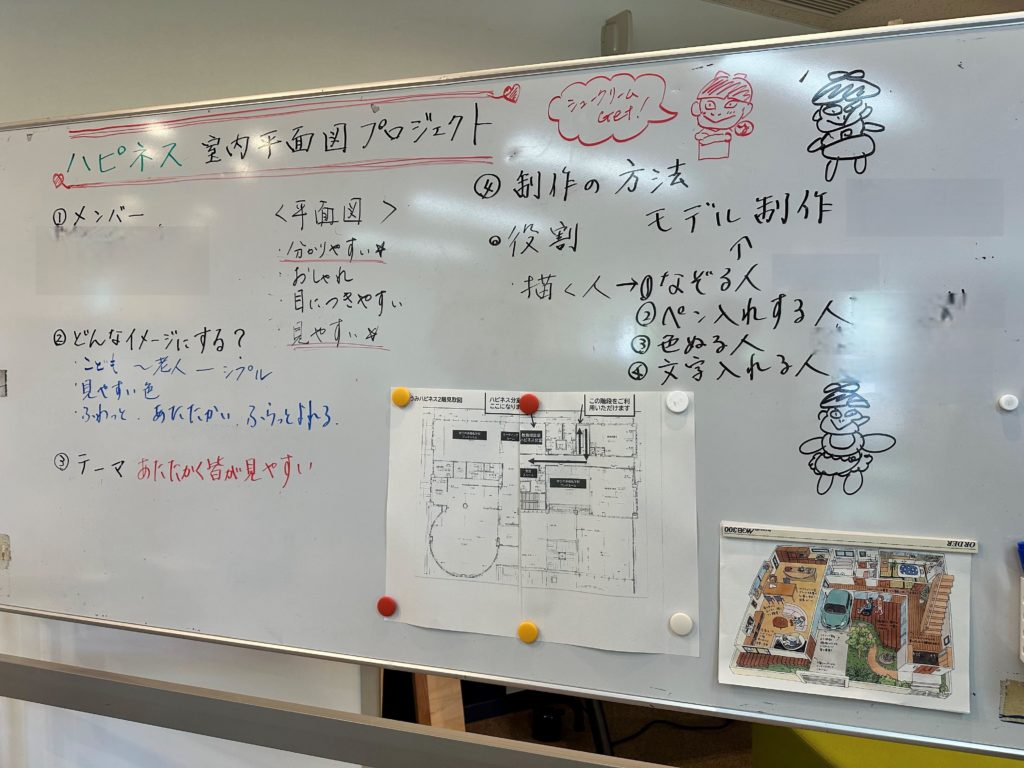 ハピネス 室内平面図プロジェクト
シュークリーム
Get!
① メンバー
<平面図>
・分かりやすい☆
・おしゃれ
・目につきやすい
・見やすい☆
② どんなイメージにする?
・こども 〜老人 ー シンプル
・見やすい色
・ふわっと、あたたかい、ふらっとよれる
③ テーマ あたたかく皆が見やすい
④ 制作の方法
モデル制作
↑
◦役割
・描く人→①なぞる人
②ペン入れする人
③色ぬる人
④文字入れる人
ハピネス2階見取図
ここになります
この階段をご利
用いただけます
ORDER